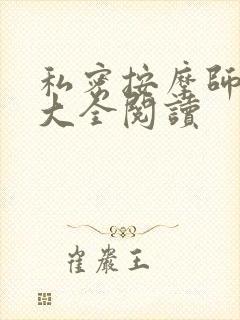 私密按摩師
大全閱讀
崔嚴王